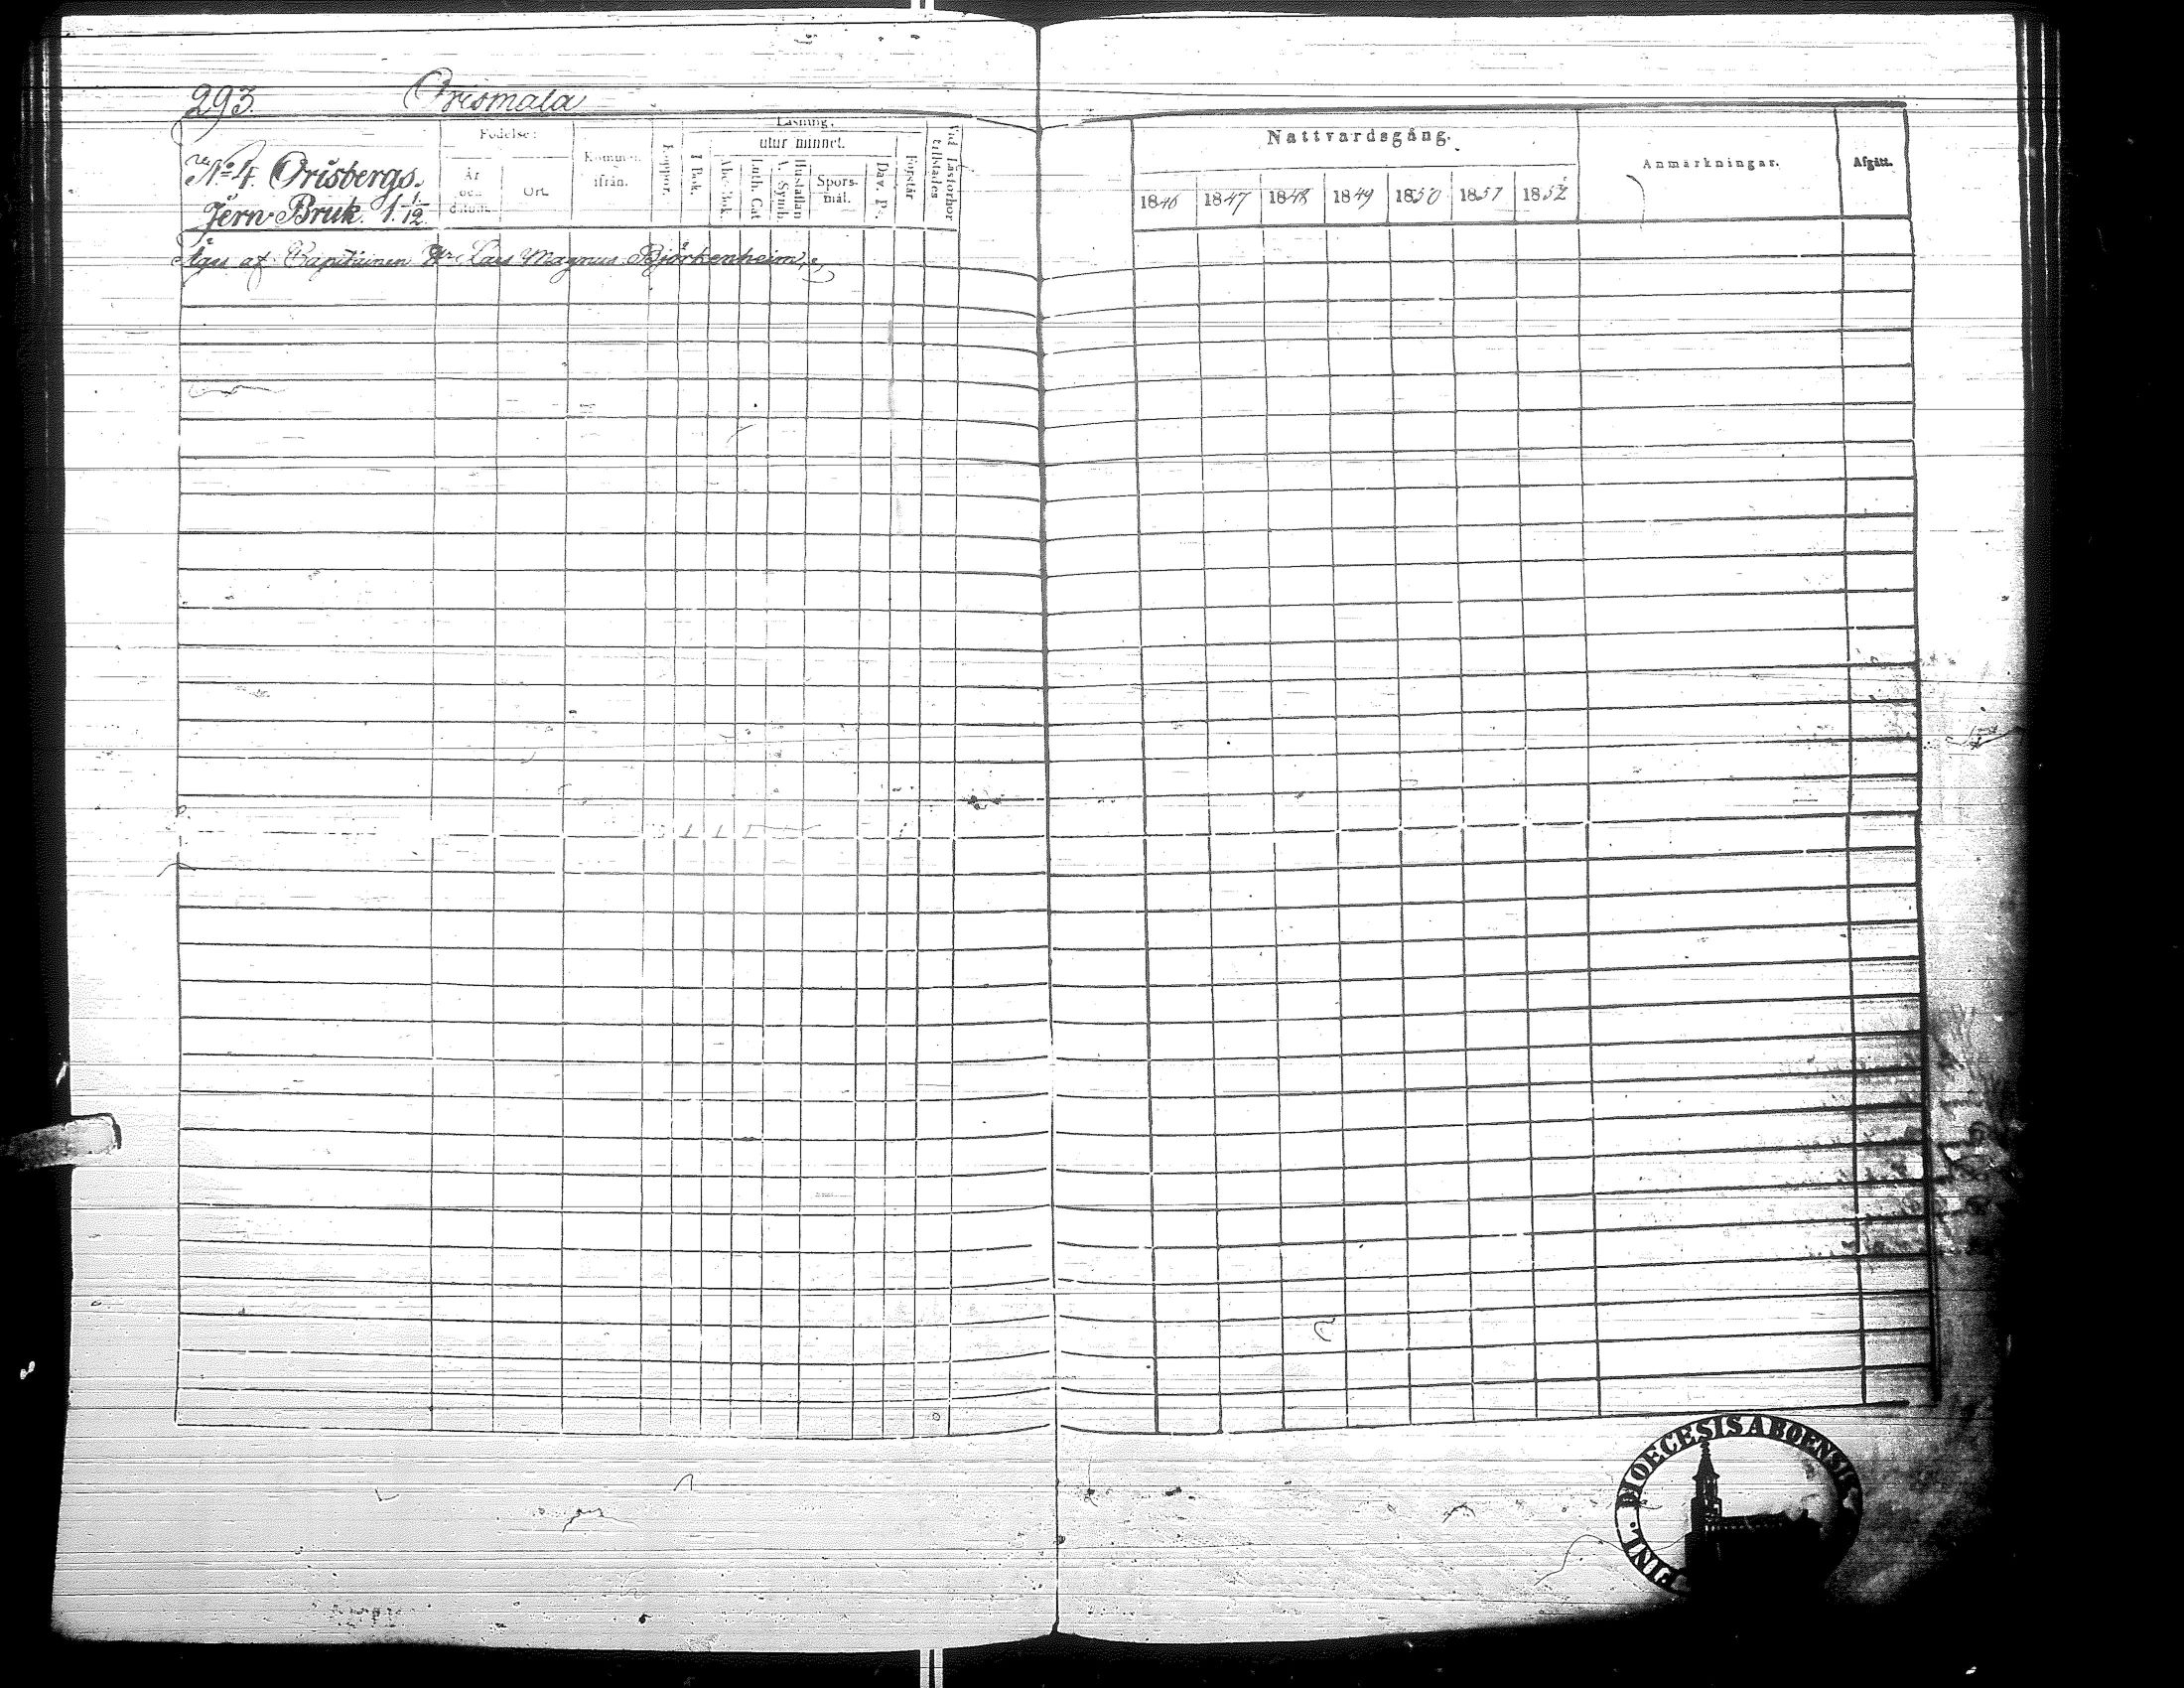 293. Orismala
Läsning.
Födelse:
utur minnet.
Kommen ifrån.
År och datum.
Ort.
Koppor.
I Bok.
Abc-Bok.
Luth. Cat
A. Symb.
Hustaflan
Spors-
mål.
Dav. Ps.
Förstår
Vid Läsförhör
tillstädes
No 4. Orisbergs
Jern Bruk. 1. 1/12
Äges af Capitainen Hr Lars Magnus Björkenheim,
Nattvardsgång.
Anmärkningar.
Afgått.
1846 1847 1848 1849 1850 1851 1852
FINL. DIOECESIS ABOENSIS